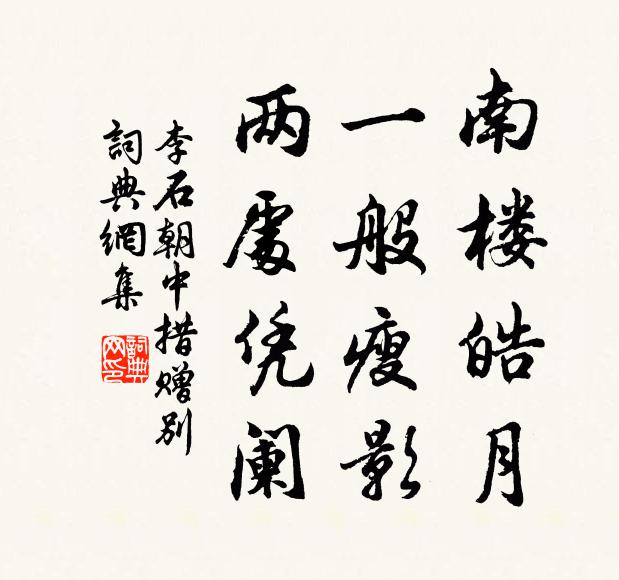 南楼皓月
一般瘦影
两處凭阑
李石朝中措赠别
詞典網集
詞典网印